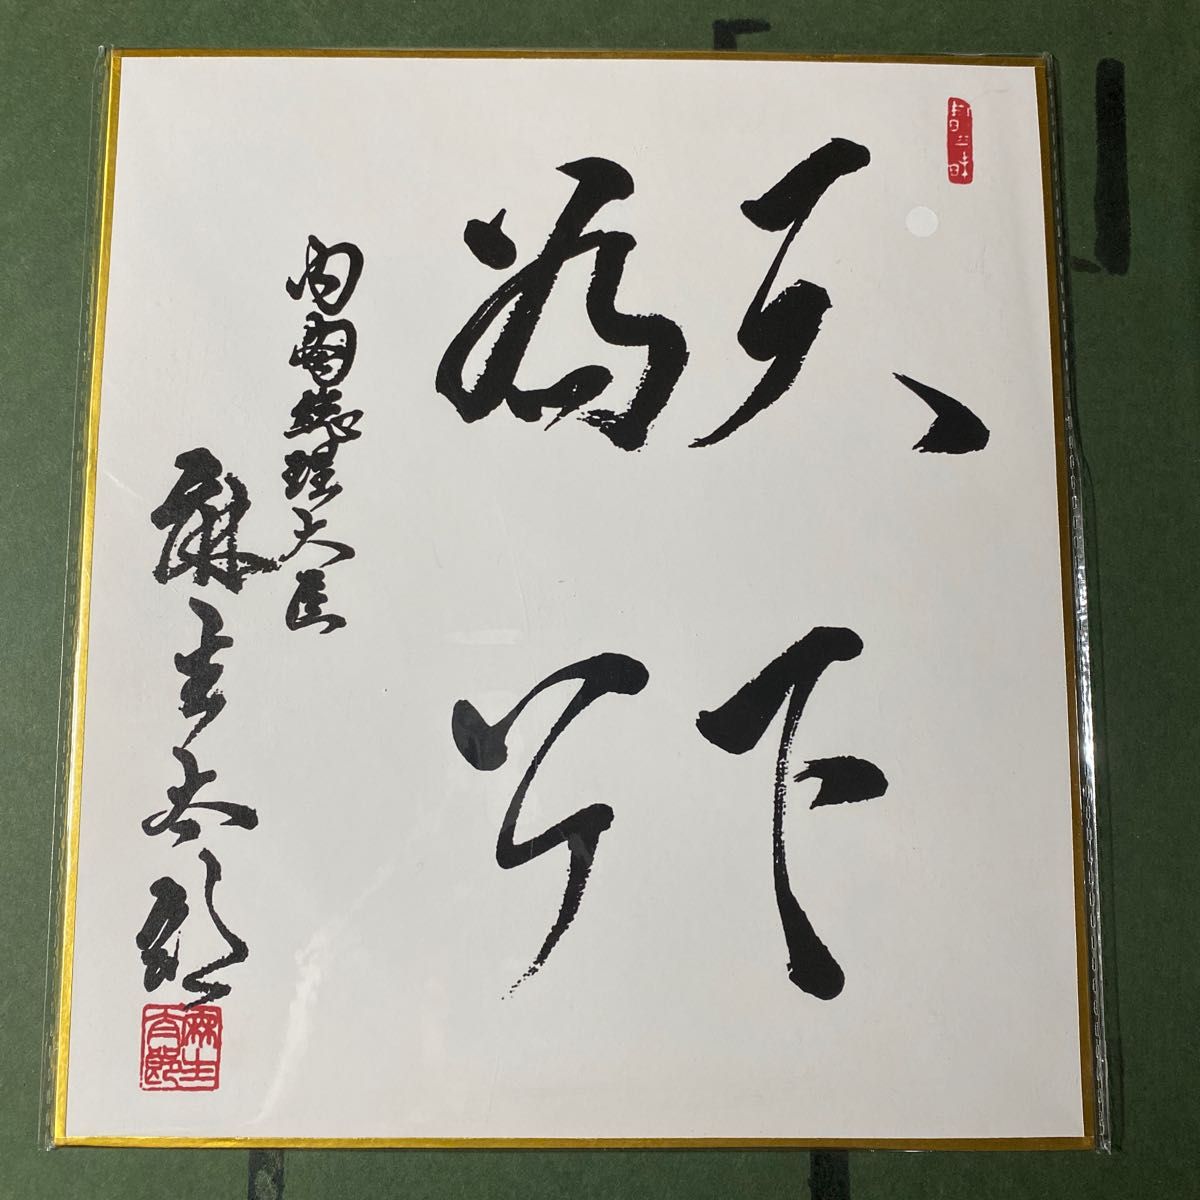 天下
為公
内閣総理大臣
麻生太郎
麻生
太郎